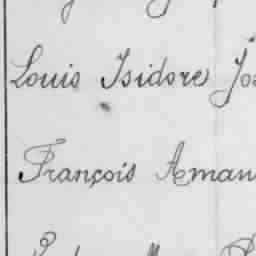 Louis Isidore Jos
François Aman